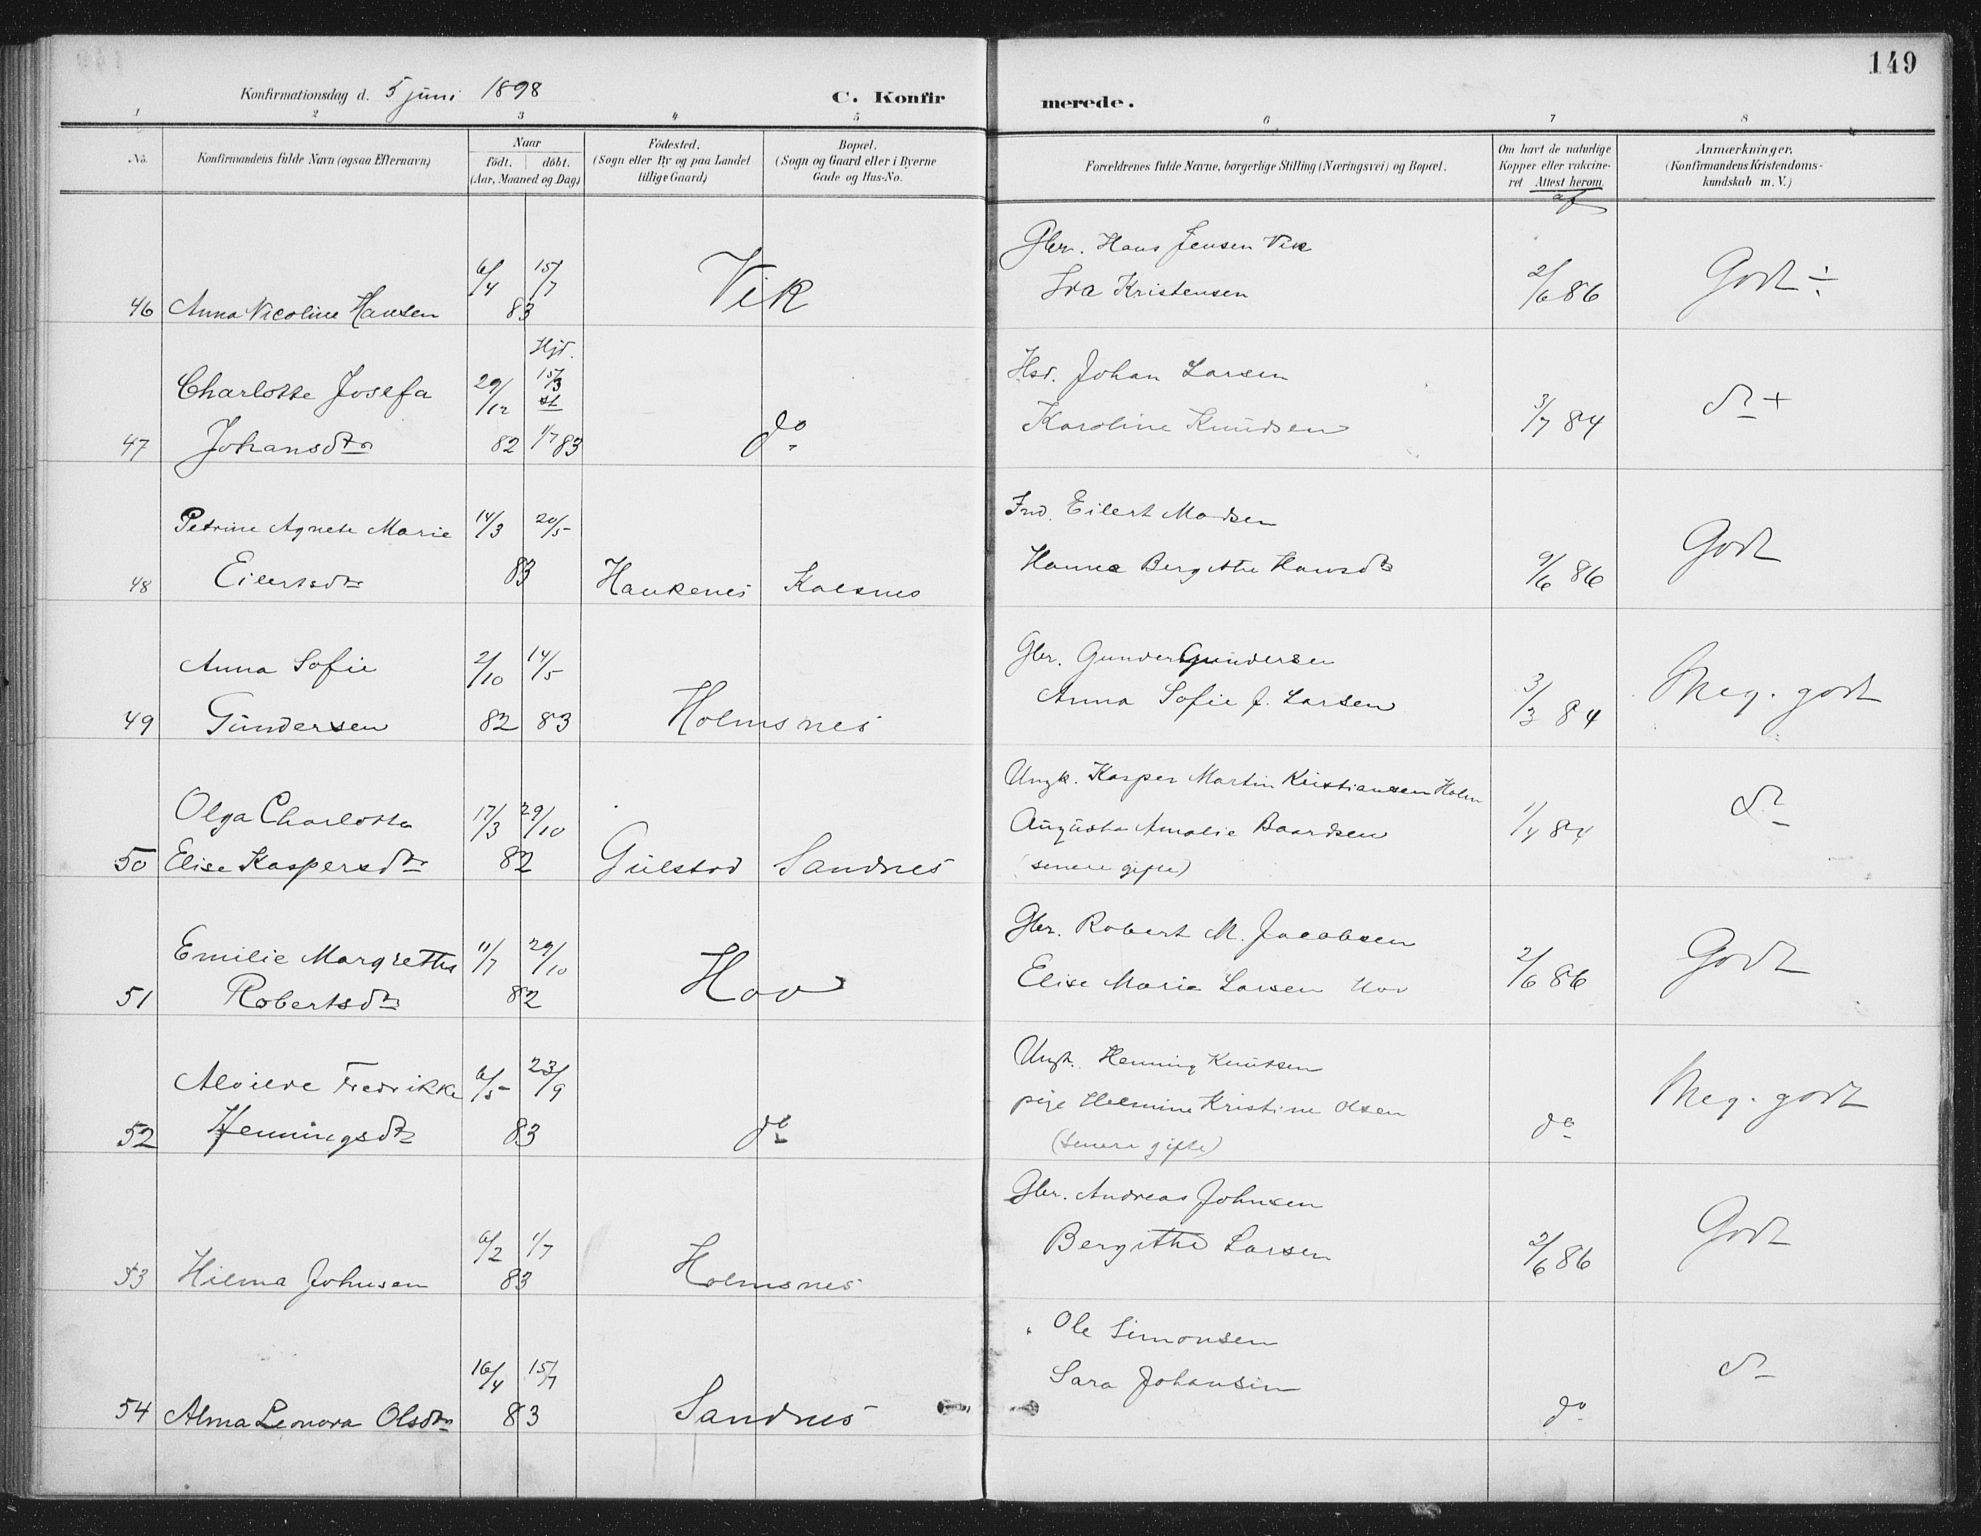 149
Konfirmationsdag d. 5 juni 1898
C. Konfirmerede.
1 2 3 4 5 6 7 8
No. Konfirmandens fulde Navn (ogsaa Efternavn) Naar födt. döbt. (Aar, Maaned og Dag) Födested. (Sogn eller By og paa Landet tillige Gaard) Bopæl. (Sogn og Gaard eller i Byerne Gade og Hus-No. Forældrenes fulde Navne, borgerlige Stilling (Næringsvei) og Bopæl. Om havt de naturlige Kopper eller vakcineret Attest herom af Anmærkninger. (Konfirmandens Kristendomskundskab m. V.)
46 Anna Nicoline Hansen 6/4 15/7 83 Vik
Gbr. Hans Jensen Vik
Kristensen 2/6 86 Godt ÷
47 Charlotte Josefa
Johansdtr 29/12 82 Hjd. 15/3 st 1/7 83 do
Hsd. Johan Larsen
Karoline Knudsen 3/7 84 do +
48 Petrine Agnete Marie
Eilertsdtr 14/3 20/5 83 Haukenes Kalsnes
Ind. Eilert Madsen
Hanna Bergitte Hansdtr 9/6 86 Godt
49 Anna Sofie
Gundersen 2/10 82 14/5 83 Holmsnes
Gbr. Gunder Gundersen
Anna Sofie J. Larsen 3/3 84 Meg. godt
50 Olga Charlotta
Elise Kaspersdtr 17/3 29/10 82 Gulstad Sandnes
Ungk. Kasper Martin Kristiansen Holm
Augusta Amalie Baardsen
(senere gifte) 1/4 84 do
51 Emilie Margrethe
Robertsdtr 11/7 29/10 82 Hov
Gbr. Robert M. Jacobsen
Elise Marie Larsen Hov 2/6 86 Godt
52 Fredrikke
Henningsdtr 6/5 23/9 83 do
Ungk. Henning Knutsen
pige Helmine Kristine Olsen
(senere gifte) do Meg. godt
53 Hilma Johnsen 6/2 1/7 83 Holmsnes
Gbr. Andreas Johnsen
Bergithe Larsen 2/6 86 Godt
54 Alma Leonora Olsdtr 16/4 15/7 83 Sandnes
" Ole Simonsen
Sara Johansen do do